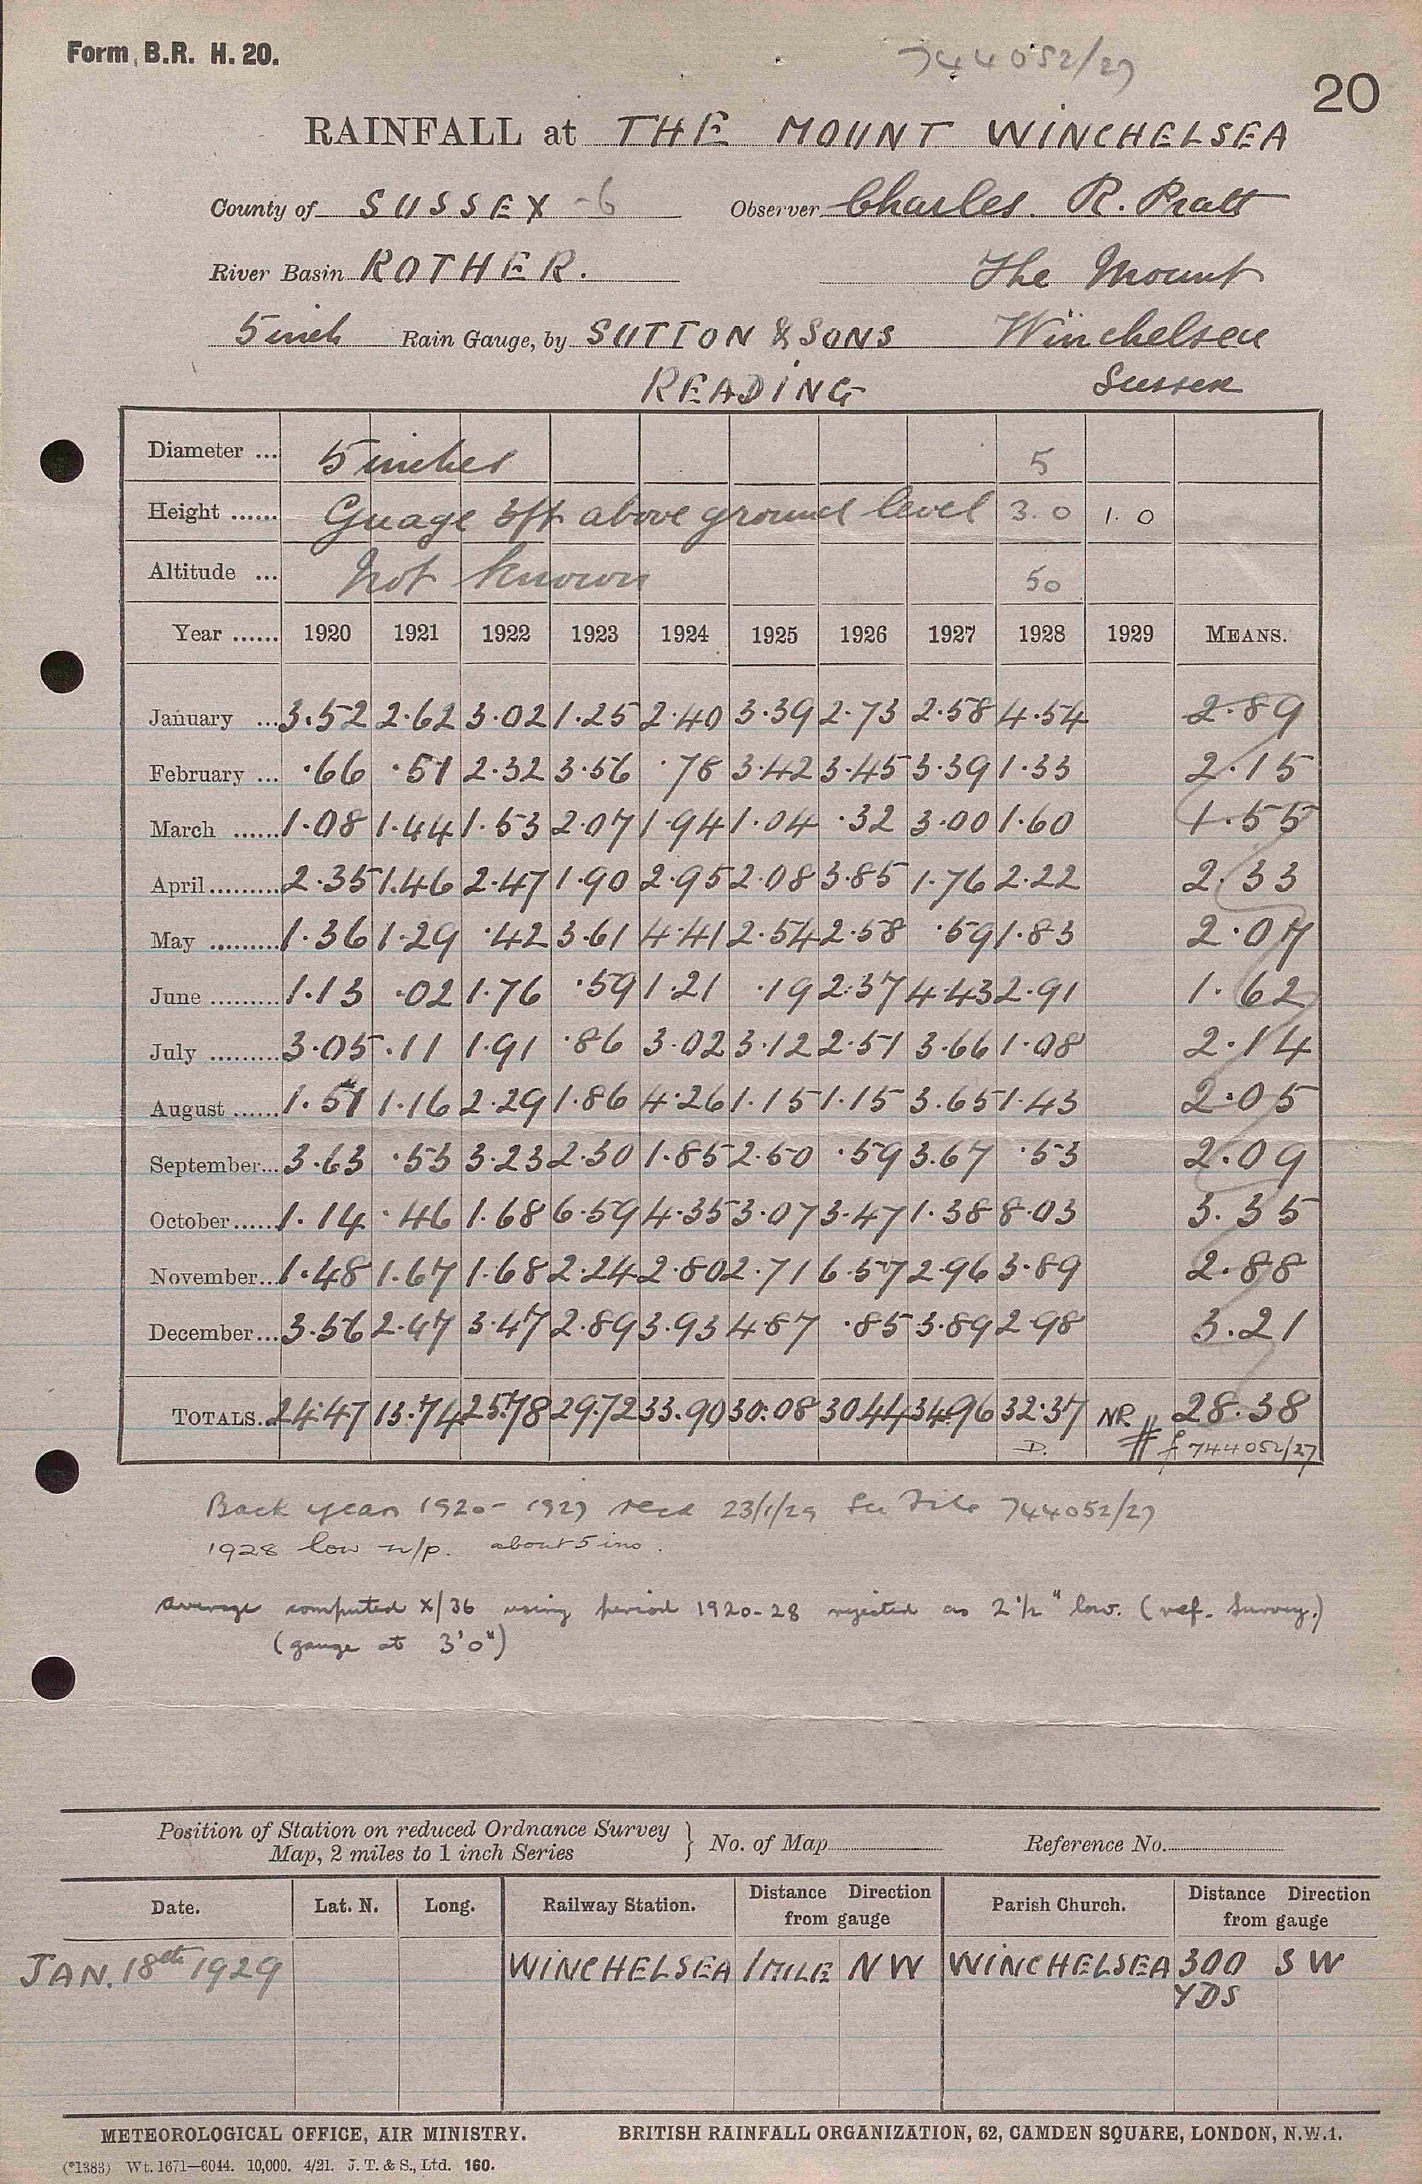 Form B.R. H. 20.
744052/27
20
RAINFALL at THE MOUNT WINCHELSEA
County of SUSSEX -6 Observer Charles. R. Pratt
River Basin ROTHER. The Mount
5 inch Rain Gauge, by SUTTON & SONS Winchelsea
READING Sussex
Diameter ... 5 inches 5
Height ...... Guage 3ft above ground level 3.0 1.0
Altitude ... Not known 50
Year ...... 1920 1921 1922 1923 1924 1925 1926 1927 1928 1929 MEANS.
January ... 3.52 2.62 3.02 1.25 2.40 3.39 2.73 2.58 4.54 2.89
February ... .66 .51 2.32 3.56 .78 3.42 3.45 3.39 1.33 2.15
March ...... 1.08 1.44 1.53 2.07 1.94 1.04 .32 3.00 1.60 1.55
April......... 2.35 1.46 2.47 1.90 2.95 2.08 3.85 1.76 2.22 2.33
May ......... 1.36 1.29 .42 3.61 4.41 2.54 2.58 .59 1.83 2.07
June ......... 1.13 .02 1.76 .59 1.21 .19 2.37 4.43 2.91 1.62
July ......... 3.05 .11 1.91 .86 3.02 3.12 2.51 3.66 1.08 2.14
August ...... 1.51 1.16 2.29 1.86 4.26 1.15 1.15 3.65 1.43 2.05
September... 3.63 .53 3.23 2.30 1.85 2.50 .59 3.67 .53 2.09
October...... 1.14 .46 1.68 6.59 4.35 3.07 3.47 1.38 8.03 3.35
November... 1.48 1.67 1.68 2.24 2.80 2.71 6.57 2.96 3.89 2.88
December... 3.56 2.47 3.47 2.89 3.93 4.87 .85 3.89 2.98 3.21
TOTALS. 24.47 13.74 25.78 29.72 33.90 30.08 30.44 34.96 32.37 NR 28.38
D. # f 744052/27
Back years 1920-1927 recd 23/1/29 See File 744052/27
1928 low n/p. about 5 ins.
average computed X/36 using period 1920-28 rejected as 2½" low. (ref. Survey.)
(gauge at 3'0")
Position of Station on reduced Ordnance Survey
Map, 2 miles to 1 inch Series } No. of Map Reference No.
Date. Lat. N. Long. Railway Station. Distance Direction from gauge Parish Church. Distance Direction from gauge
JAN. 18th 1929 WINCHELSEA 1 MILE NW WINCHELSEA 300 SW
YDS
METEOROLOGICAL OFFICE, AIR MINISTRY. BRITISH RAINFALL ORGANIZATION, 62, CAMDEN SQUARE, LONDON, N.W.1.
(*1383) Wt. 1671—6044. 10,000. 4/21. J. T. & S., Ltd. 160.